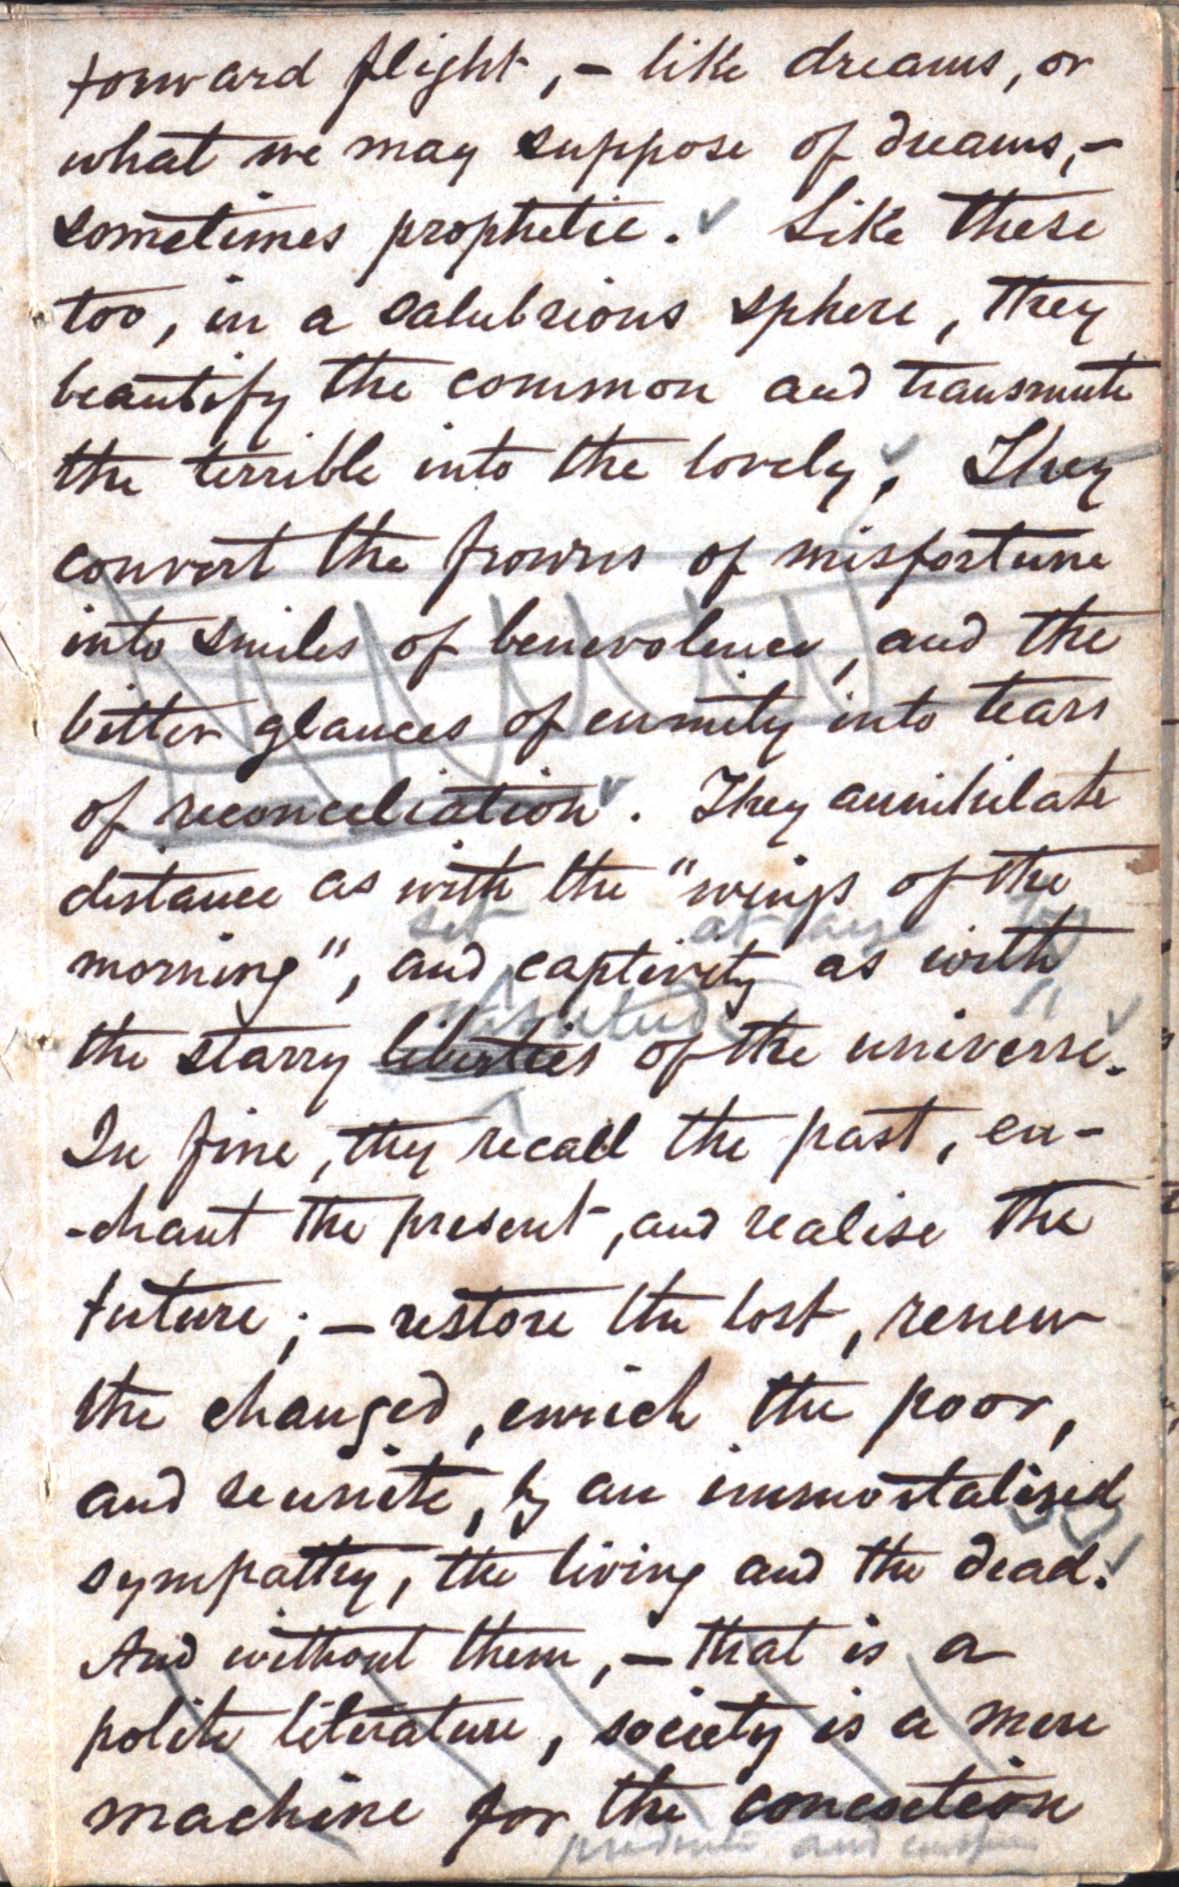 forward flight, - like dreams, or
what we may suppose of dreams, -
sometimes prophetic. Like these
too, in a salubrious sphere, they
beautify the common and transmute
the terrible into the lovely; They
convert the frowns of misfortune
into smiles of benevolence, and the
bitter glances of enmity into tears
of reconciliation. They annihilate
distance as with the "wings of the
set at large by
morning", and captivity as with
the starry liberties of the universe.
In fine, they recall the past, en-
-chant the present, and realise the
future; - restore the lost, renew
the changed, enrich the poor,
and reunite, by an immortalised
sympathy, the living and the dead.
And without them, - that is a
polite literature, society is a mere
machine for the
and